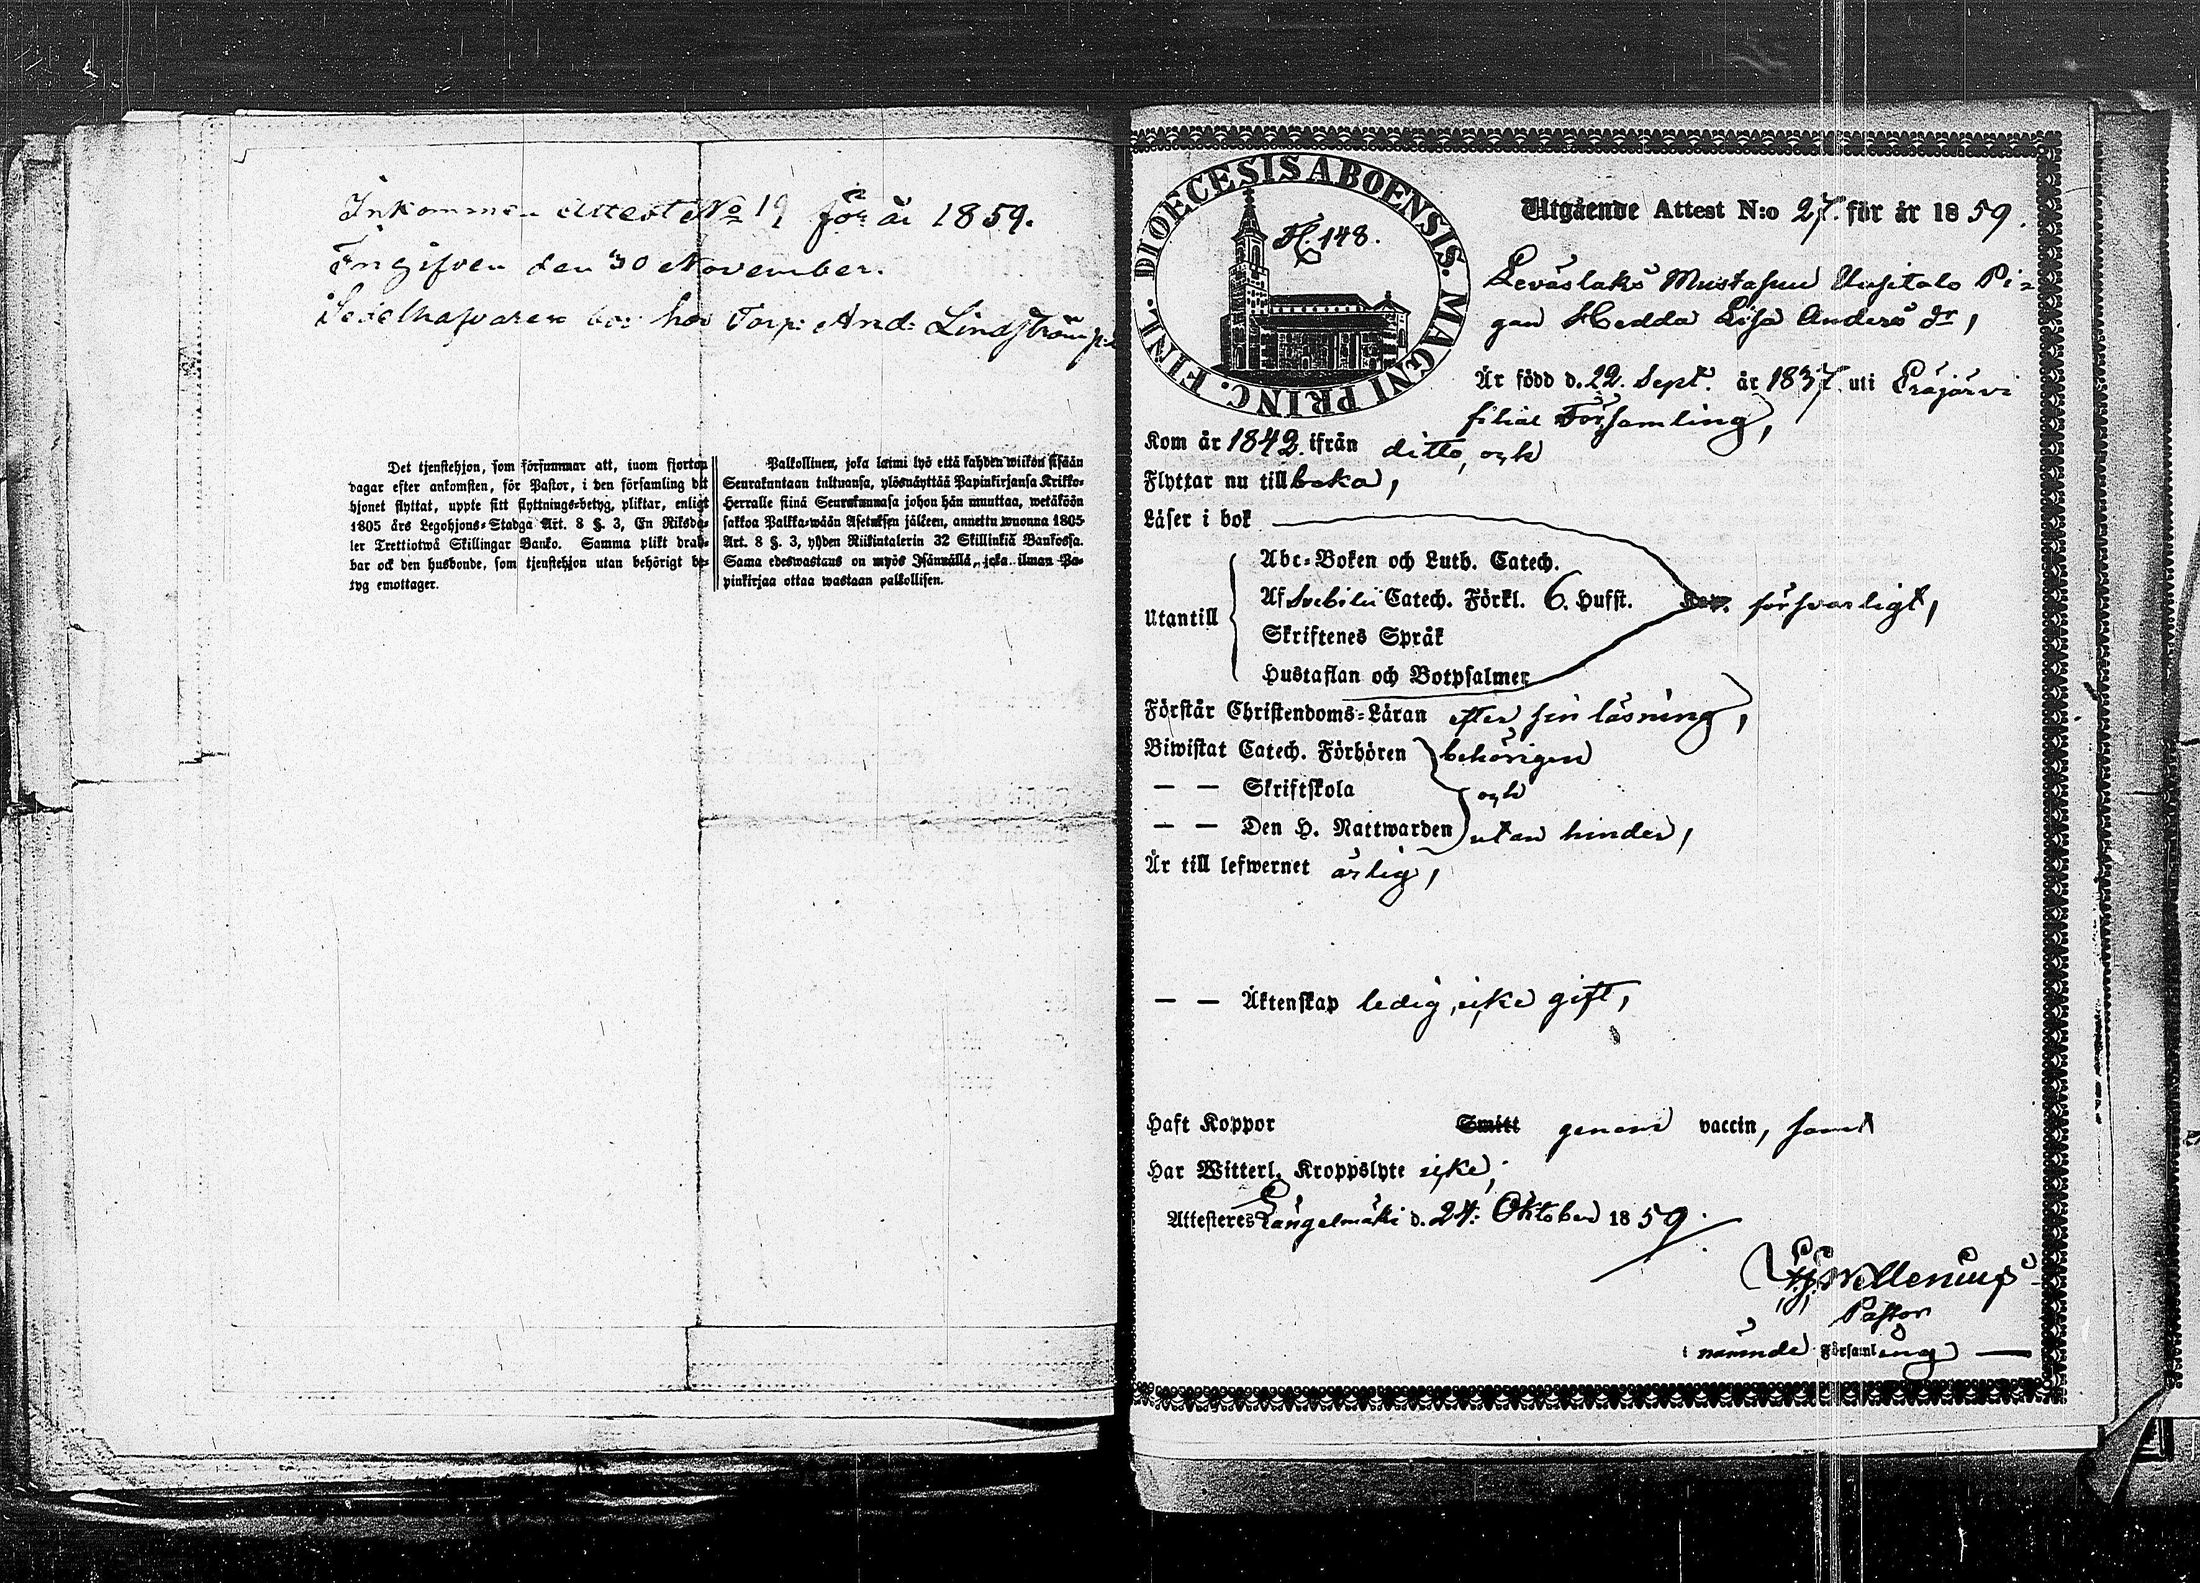 Inkommen Attest No 19 för år 1859.
Ingifven den 30 November.
Sedelhafvaren bor hos Torp: And: Lindström
Det tjenstehjon, som försummar att, inom fjorton
dagar efter ankomsten, för Pastor, i den församling dit
hjonet flyttat, uppte sitt flyttnings-betyg, pliktar, enligt
1805 års Legohjons-Stadga Art. 8 §. 3, En Riksda-
ler Trettiotwå Skillingar Banko. Samma plikt drab-
bar ock den husbonde, som tjenstehjon utan behörigt be-
tyg emottager.
Palkollinen, joka laimi lyö että kahden wiikon sisään
Seurakuntaan tultuansa, ylösnäyttää Papinkirjansa Kirkko-
Herralle siinä Seurakunnasa johon hän muuttaa, wetäköön
sakkoa Palkka-wään Asetuksen jälkeen, annettu wuonna 1805
Art. 8 §. 3, yhden Riikintalerin 32 Skillinkiä Bankossa.
Sama edeswastaus on myös Isännällä, joka ilman Pa-
pinkirjaa ottaa wastaan palkollisen.
DIOECESIS ABOENSIS. MAGNI PRINC. FINL.
H. 148.
Utgående Attest N:o 27. för år 1859.
Leväslaks Mustasuu Uusitalo Pi-
gan Hedda Lisa Anders dr,
Är född d. 22. Sept. år 1837. uti Eräjärvi
filial Församling,
Kom år 1842 ifrån ditto, och
Flyttar nu tillbaka,
Läser i bok
Abc-Boken och Luth. Catech.
Utantill Af Svebilii Catech. Förkl. 6. Hufst. försvarligt,
Skriftenes Språk
Hustaflan och Botpsalmer
Förstår Christendoms-Läran efter sin läsning,
Biwistat Catech. Förhören behörigen
— — Skriftskola och
— — Den H. Nattwarden utan hinder,
Är till lefwernet ärlig,
— — Äktenskap ledig, icke gift,
Haft Koppor Smitt genom vaccin, samt
Har Witterl. Kroppslyte icke,
Attesteres Längelmäki d. 24. Oktober 1859.
Pastor
i nämnde Församling